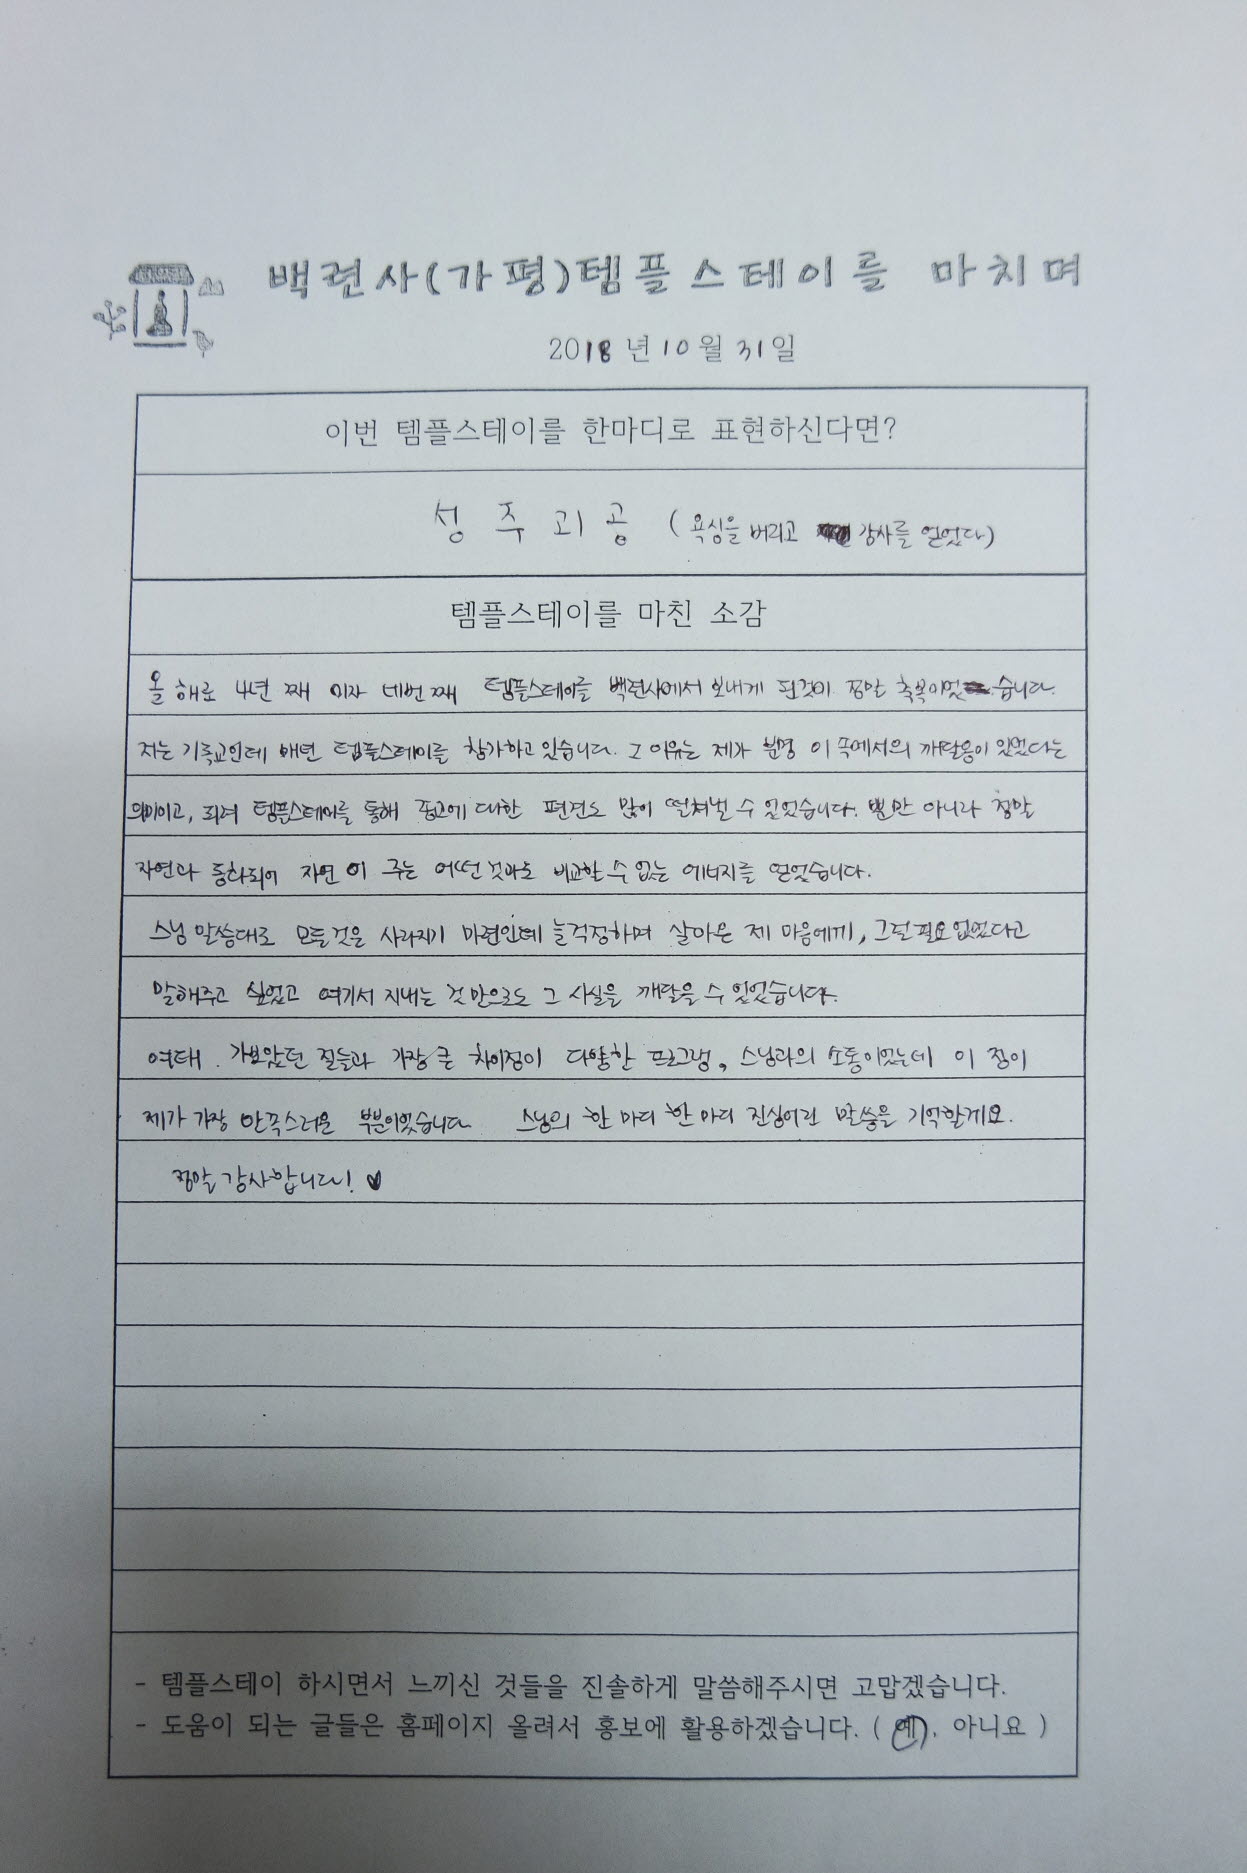 백련사(가평)템플스테이를 마치며
2018년 10월 31일
이번 템플스테이를 한마디로 표현하신다면?
성 주 괴 공 (욕심을 버리고 감사를 얻었다)
템플스테이를 마친 소감
올 해로 4년 째 이자 네번째 템플스테이를 백련사에서 보내게 된것이 정말 축복이었습니다.
저는 기독교인데 매년 템플스테이를 참가하고 있습니다. 그 이유는 제가 분명 이 곳에서의 깨달음이 있었다는
의미이고, 되려 템플스테이를 통해 종교에 대한 편견도 많이 떨쳐낼 수 있었습니다. 뿐만 아니라 정말
자연과 동화되어 자연 이 주는 어떤 것과도 비교할 수 없는 에너지를 얻었습니다.
스님 말씀대로 모든것은 사라지기 마련인데 늘걱정하며 살아온 제 마음에게, 그럴필요없었다고
말해주고 싶었고 여기서 지내는 것 만으로도 그 사실을 깨달을 수 있었습니다.
여태 가보았던 절들과 가장 큰 차이점이 다양한 프로그램, 스님과의 소통이었는데 이 점이
제가 가장 만족스러운 부분이었습니다 스님의 한 마디 한 마디 진심어린 말씀을 기억할게요.
정말 감사합니다! ♥
- 템플스테이 하시면서 느끼신 것들을 진솔하게 말씀해주시면 고맙겠습니다.
- 도움이 되는 글들은 홈페이지 올려서 홍보에 활용하겠습니다. ( 예, 아니요 )